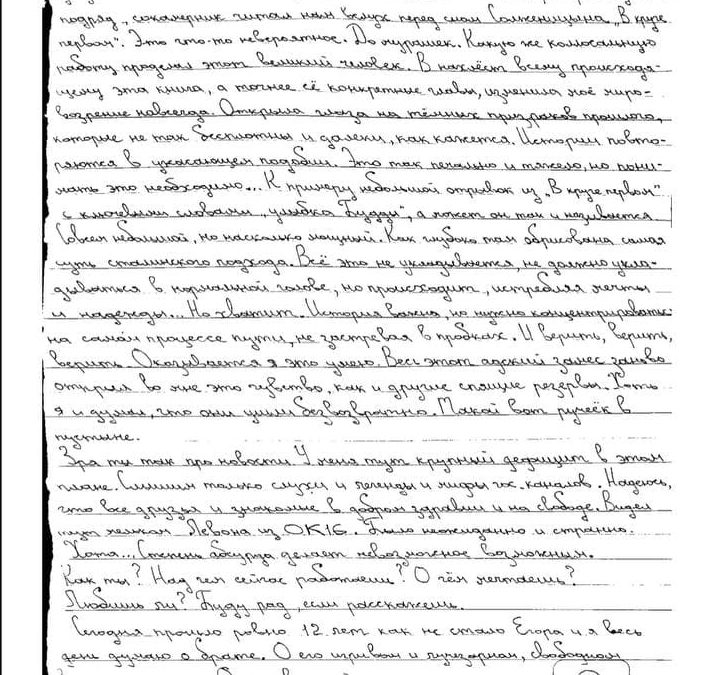 подряд, сокамерник читал нам вслух перед сном Солженицына „В круге
первом“. Это что-то невероятное. До мурашек. Какую же колосальную
работу проделал этот великий человек. В нахлёст всему происходя-
щему эта книга, а точнее её конкретные главы, изменила моё миро-
воззрение навсегда. Открыла глаза на тёмных призраков прошлого,
которые не так бесплотны и далеки, как кажется. Истории повто-
ряются в ужасающем подобии. Это так печально и тяжело, но пони-
мать это необходимо... К примеру небольшой отрывок из „В круге первом“
с ключевыми словами „улыбка Будды“, а может он так и называется
Совсем небольшой, но насколько мощный. Как глубоко там обрисована самая
суть сталинского подхода. Всё это не укладывается, не должно укла-
дываться в нормальной голове, но происходит, истребляя мечты
и надежды... Но хватит. История важна, но нужно концентрироваться
на самом процессе пути, не застревая в пробках. И верить, верить,
верить. Оказывается я это умею. Весь этот адский занес заново
открыл во мне это чувство, как и другие спящие резервы. Хоть
я и думал, что они ушли безвозвратно. Такой вот ручеёк в
пустыне.
Зра ты так про новости. У меня тут крупный дефицит в этом
плане. Слышим только слухи и легенды и мифы гос. каналов. Надеюсь,
что все друзья и знакомые в добром здравии и на свободе. Видел
тут мельком Левона из OK16. Было неожиданно и странно.
Хотя... Степень абсурда делает невозможное возможным.
Как ты? Над чем сейчас работаешь? О чём мечтаешь?
Любишь ли? Буду рад, если расскажешь.
Сегодня прошло ровно 12 лет как не стало Егора и я весь
день думаю о брате. О его игривом и лучезарном, свободном